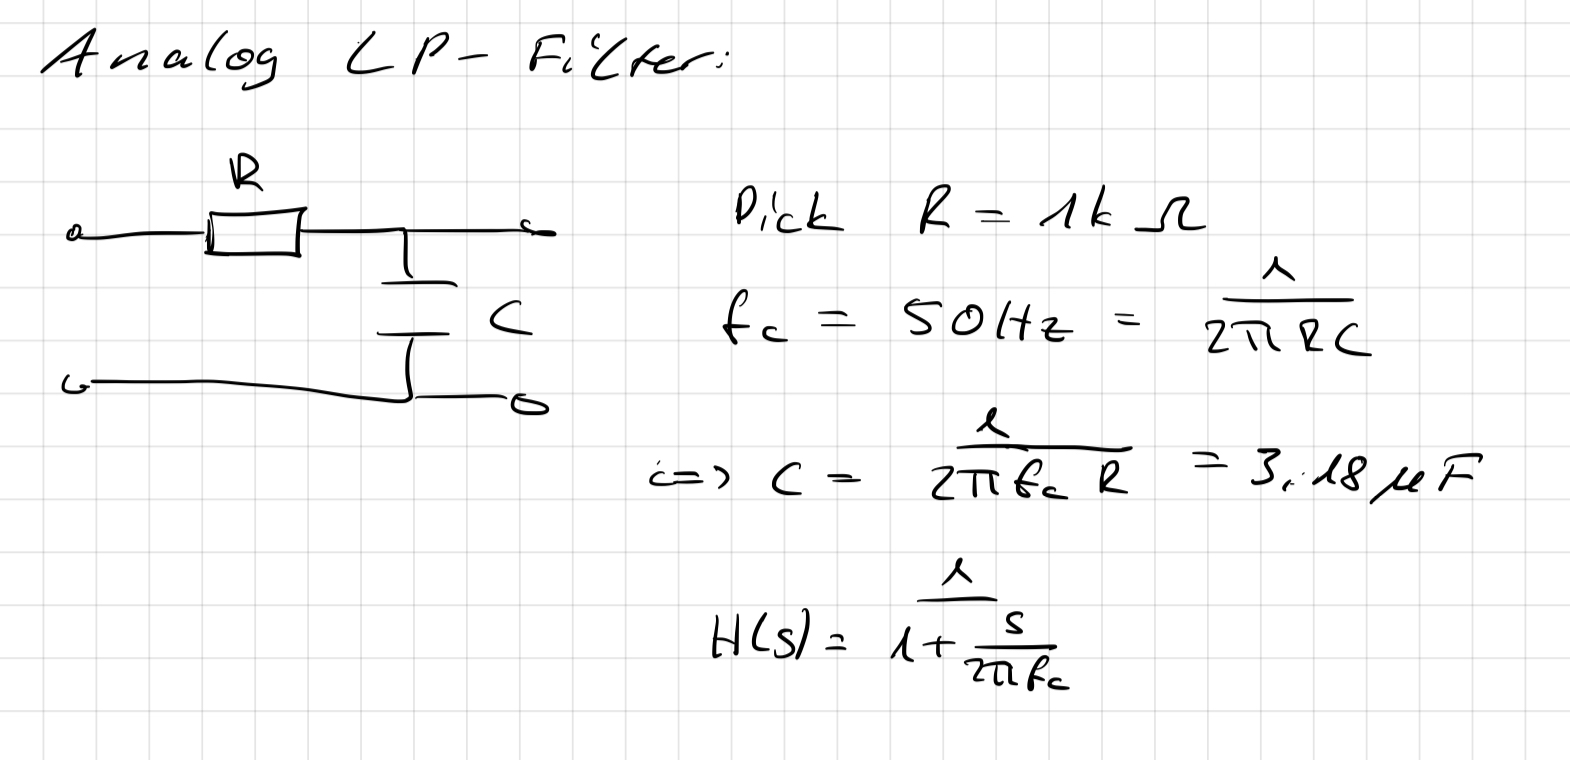 Analog LP-Filter:
R
C
Pick R = 1k Ω
fc = 50Hz = 1/(2π RC)
<=> C = 1/(2π fc R) = 3.18 µF
H(s) = 1/(1 + s/(2π fc))